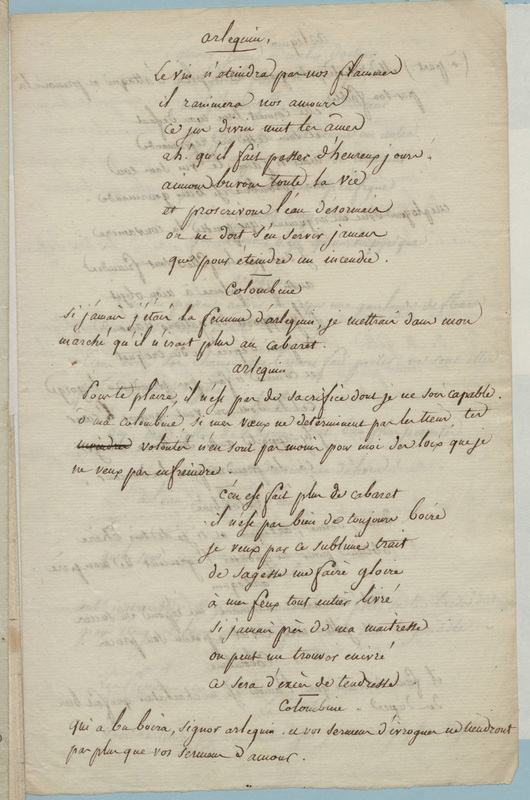 arlequin.
Le vin n'eteindra pas nos flammes
il ranimera nos amours
ce jus divin met les âmes
ah! qu'il fait passer d'heureux jours.
aimons buvons toute la vie
et proscrivons l'eau desormais
on ne doit s'en servir jamais
que pour éteindre un incendie.
Colombine
si jamais j'étais la femme d'arlequin, je mettrais dans mon
marché qu'il n'irait plus au cabaret.
arlequin
Pour te plaire, il n'est pas de sacrifice dont je ne sois capable.
ô ma colombine, si mes vœux ne determinent pas les tiens, tes
volontés n'en sont pas moins pour moi des loix que je
ne veux pas enfreindre.
C'en est fait plus de cabaret
il n'est pas bien de toujours boire
je veux par ce sublime trait
de sagesse me faire gloire
à mes feux tout entier livré
si jamais près de ma maitresse
on peut me trouver enivré
ce sera d'excès de tendresse
Colombine
qui a bu boira, signor arlequin. et vos sermens d'ivrognes ne tiendront
pas plus que vos sermens d'amour.